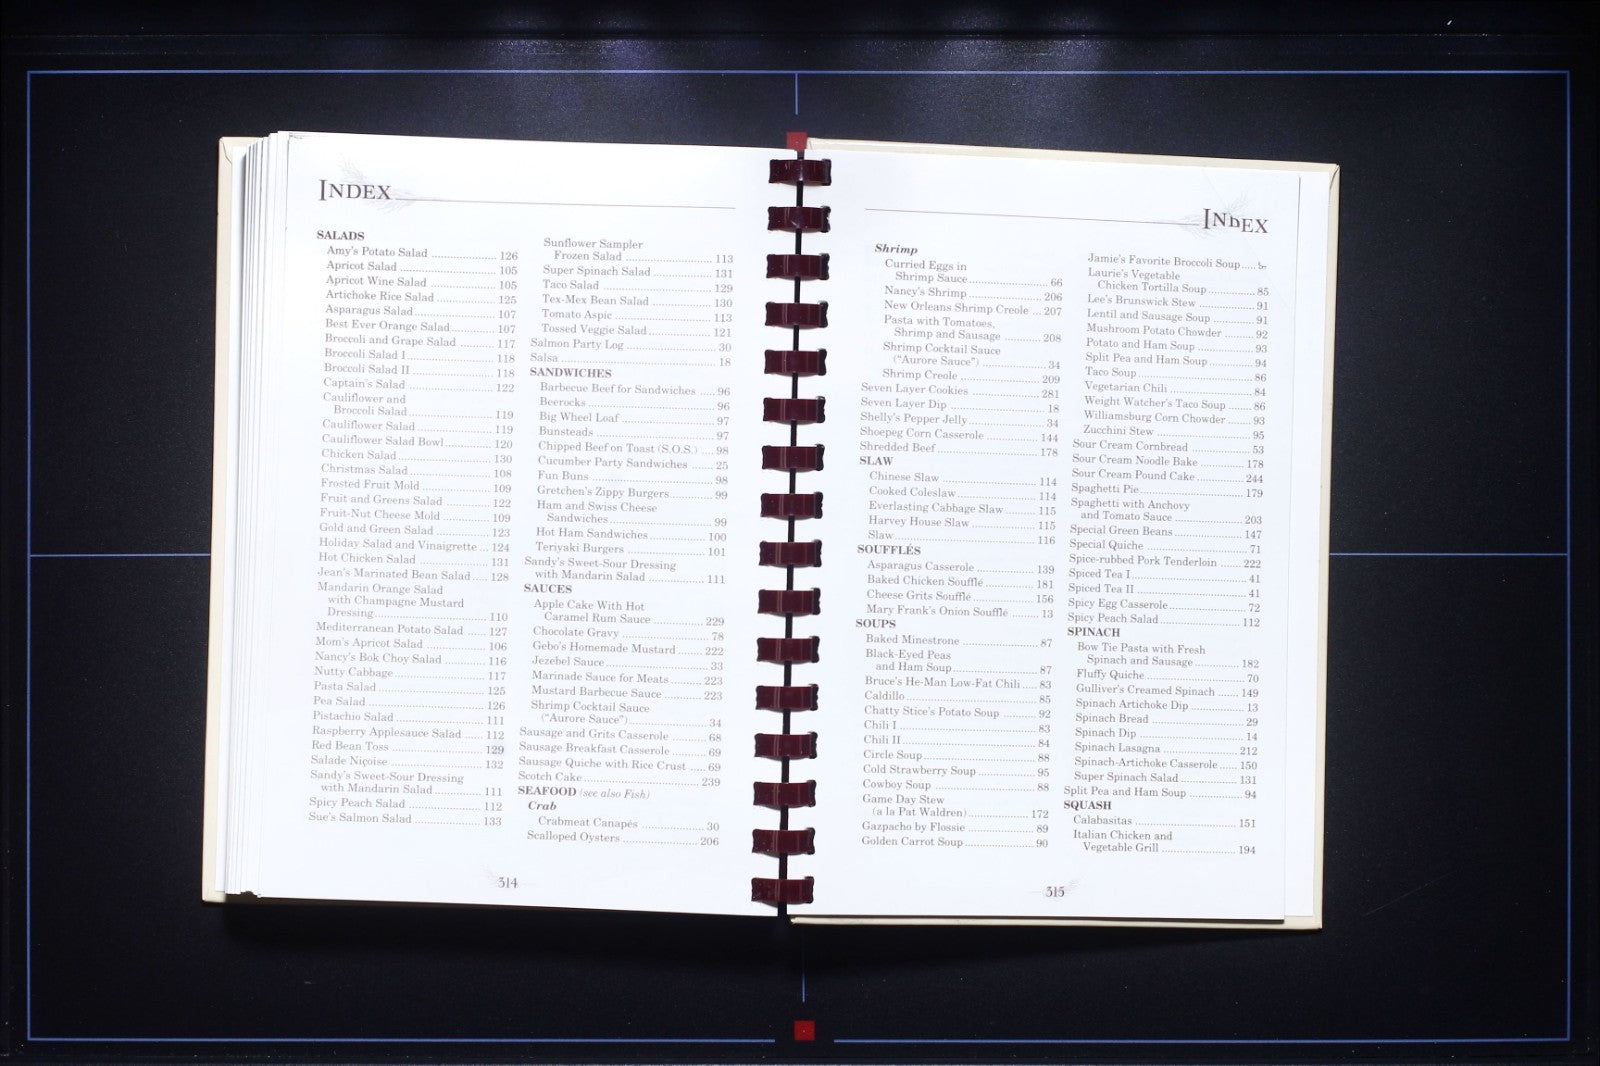 INDEX
SALADS
Amy's Potato Salad 126
Apricot Salad 105
Apricot Wine Salad 105
Artichoke Rice Salad 125
Asparagus Salad 107
Best Ever Orange Salad 107
Broccoli and Grape Salad 117
Broccoli Salad I 118
Broccoli Salad II 118
Captain's Salad 122
Cauliflower and
Broccoli Salad 119
Cauliflower Salad 119
Cauliflower Salad Bowl 120
Chicken Salad 130
Christmas Salad 108
Frosted Fruit Mold 109
Fruit and Greens Salad 122
Fruit-Nut Cheese Mold 109
Gold and Green Salad 123
Holiday Salad and Vinaigrette 124
Hot Chicken Salad 131
Jean's Marinated Bean Salad 128
Mandarin Orange Salad
with Champagne Mustard
Dressing 110
Mediterranean Potato Salad 127
Mom's Apricot Salad 106
Nancy's Bok Choy Salad 116
Nutty Cabbage 117
Pasta Salad 125
Pea Salad 126
Pistachio Salad 111
Raspberry Applesauce Salad 112
Red Bean Toss 129
Salade Niçoise 132
Sandy's Sweet-Sour Dressing
with Mandarin Salad 111
Spicy Peach Salad 112
Sue's Salmon Salad 133
Sunflower Sampler
Frozen Salad 113
Super Spinach Salad 131
Taco Salad 129
Tex-Mex Bean Salad 130
Tomato Aspic 113
Tossed Veggie Salad 121
Salmon Party Log 30
Salsa 18
SANDWICHES
Barbecue Beef for Sandwiches 96
Beerocks 96
Big Wheel Loaf 97
Bunsteads 97
Chipped Beef on Toast (S.O.S.) 98
Cucumber Party Sandwiches 25
Fun Buns 98
Gretchen's Zippy Burgers 99
Ham and Swiss Cheese
Sandwiches 99
Hot Ham Sandwiches 100
Teriyaki Burgers 101
Sandy's Sweet-Sour Dressing
with Mandarin Salad 111
SAUCES
Apple Cake With Hot
Caramel Rum Sauce 229
Chocolate Gravy 78
Gebo's Homemade Mustard 222
Jezebel Sauce 33
Marinade Sauce for Meats 223
Mustard Barbecue Sauce 223
Shrimp Cocktail Sauce
("Aurore Sauce") 34
Sausage and Grits Casserole 68
Sausage Breakfast Casserole 69
Sausage Quiche with Rice Crust 69
Scotch Cake 239
SEAFOOD (see also Fish)
Crab
Crabmeat Canapés 30
Scalloped Oysters 206
314
INDEX
Shrimp
Curried Eggs in
Shrimp Sauce 66
Nancy's Shrimp 206
New Orleans Shrimp Creole 207
Pasta with Tomatoes,
Shrimp and Sausage 208
Shrimp Cocktail Sauce
("Aurore Sauce") 34
Shrimp Creole 209
Seven Layer Cookies 281
Seven Layer Dip 18
Shelly's Pepper Jelly 34
Shoepeg Corn Casserole 144
Shredded Beef 178
SLAW
Chinese Slaw 114
Cooked Coleslaw 114
Everlasting Cabbage Slaw 115
Harvey House Slaw 115
Slaw 116
SOUFFLÉS
Asparagus Casserole 139
Baked Chicken Soufflé 181
Cheese Grits Soufflé 156
Mary Frank's Onion Soufflé 13
SOUPS
Baked Minestrone 87
Black-Eyed Peas
and Ham Soup 87
Bruce's He-Man Low-Fat Chili 83
Caldillo 85
Chatty Stice's Potato Soup 92
Chili I 83
Chili II 84
Circle Soup 88
Cold Strawberry Soup 95
Cowboy Soup 88
Game Day Stew
(a la Pat Waldren) 172
Gazpacho by Flossie 89
Golden Carrot Soup 90
Jamie's Favorite Broccoli Soup
Laurie's Vegetable
Chicken Tortilla Soup 85
Lee's Brunswick Stew 91
Lentil and Sausage Soup 91
Mushroom Potato Chowder 92
Potato and Ham Soup 93
Split Pea and Ham Soup 94
Taco Soup 86
Vegetarian Chili 84
Weight Watcher's Taco Soup 86
Williamsburg Corn Chowder 93
Zucchini Stew 95
Sour Cream Cornbread 53
Sour Cream Noodle Bake 178
Sour Cream Pound Cake 244
Spaghetti Pie 179
Spaghetti with Anchovy
and Tomato Sauce 203
Special Green Beans 147
Special Quiche 71
Spice-rubbed Pork Tenderloin 222
Spiced Tea I 41
Spiced Tea II 41
Spicy Egg Casserole 72
Spicy Peach Salad 112
SPINACH
Bow Tie Pasta with Fresh
Spinach and Sausage 182
Fluffy Quiche 70
Gulliver's Creamed Spinach 149
Spinach Artichoke Dip 13
Spinach Bread 29
Spinach Dip 14
Spinach Lasagna 212
Spinach-Artichoke Casserole 150
Super Spinach Salad 131
Split Pea and Ham Soup 94
SQUASH
Calabasitas 151
Italian Chicken and
Vegetable Grill 194
315